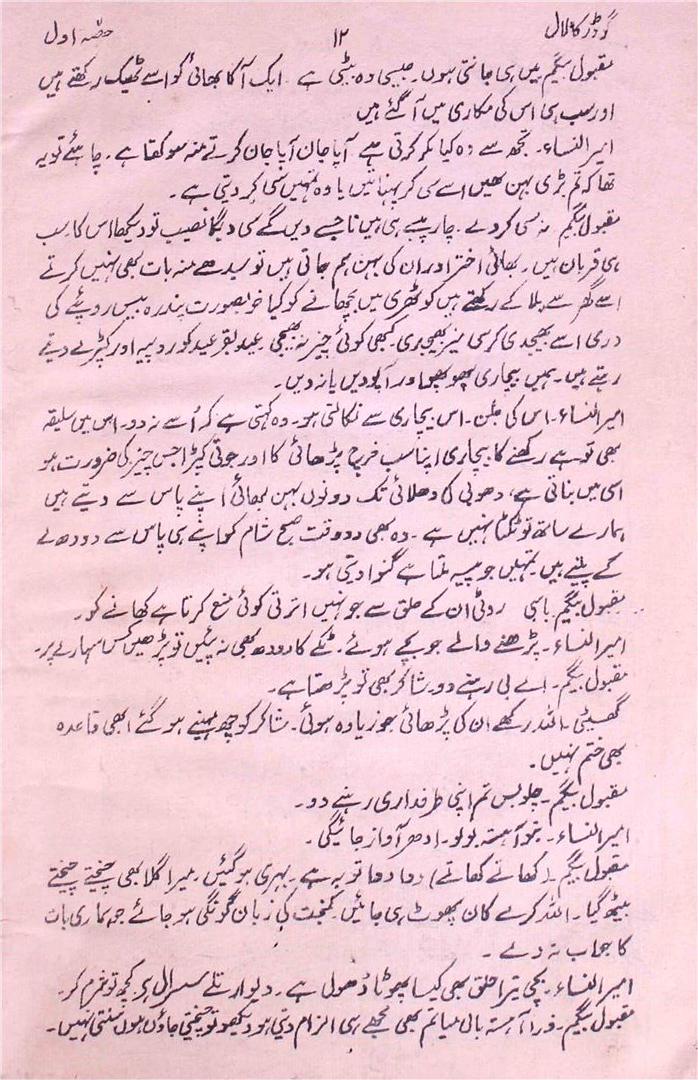 گودڑ کا لال ۱۲ حصّہ اول
مقبول بیگم میں ہی جانتی ہوں۔ جیسی وہ بیٹی ہے۔ ایک آکا بھائی گو اسے ٹھیک رکھتے ہیں
اور سب ہی اس کی مکاری میں آگئے ہیں
امیر النساء۔ تجھ سے وہ کیا مکر کرتی ہے آپا جان آپا جان کرتے منہ سوکھتا ہے۔ چاہئے تو یہ
تھا کہ تم بڑی بہن تھیں اسے سی کر پہناتیں یا وہ تمہیں سی کر دیتی ہے۔
مقبول بیگم نہ سی کر دے۔ چار پیسے ہی ہیں نا جسے دیں گے سی دیگا نصیب تو دیکھا اس کا سب
ہی قربان ہیں۔ بھائی اختر اور ان کی بہن ہم جاتی ہیں تو سیدھے منہ بات بھی نہیں کرتے
اسے گھر سے بلا کے رکھتے ہیں کوٹھری میں بچھانے کو کیا خوبصورت پندرہ بیس روپئے کی
دری اسے بھیجدی کرسی میز بھیجدی۔ کبھی کوئی چیز نہ بھیجی۔ عید بقر عید کو روپیہ اور کپڑے دیتے
رہتے ہیں۔ ہمیں بیچاری پھوپھو اور آپا دیں یا نہ دیں۔
امیر النساء۔ اس کی جلن۔ اس بیچاری سے نکالتی ہو۔ وہ کہتی ہے کہ اُسے نہ دو۔ اس میں سلیقہ
بھی تو ہے رکھنے کا بیچاری اپنا سب خرچ پڑھائی کا اور جوتی کپڑا جس چیز کی ضرورت ہو
اسی میں بناتی ہے، دھوبی کی دھلائی تک دونوں بہن بھائی اپنے پاس سے دیتے ہیں
ہمارے ساتھ تو ٹکڑا نہیں ہے۔ وہ بھی دو وقت صبح شام کو اپنے ہی پاس سے دودھ لے
کے پیتے ہیں تمہیں جو پیسہ ملتا ہے گنوا دیتی ہو۔
مقبول بیگم باسی روٹی ان کے حلق سے جو نہیں اترتی کوئی منع کرتا ہے کھانے کو۔
امیر النساء۔ پڑھنے والے جو بچے ہوئے۔ ٹکے کا دودھ بھی نہ پئیں تو پڑھیں کس سہارے پر۔
مقبول بیگم۔ اے بی رہنے دو۔ شاکر بھی تو پڑھتا ہے۔
گھسیٹی۔ اللہ رکھے ان کی پڑھائی جو زیادہ ہوئی۔ شاکر کو چھ مہینے ہو گئے ابھی قاعدہ
بھی ختم نہیں۔
مقبول بیگم۔ چلو بس تم اپنی طرفداری رہنے دو۔
امیر النساء۔ بنّو آہستہ بولو۔ ادھر آواز جائیگی۔
مقبول بیگم۔ (کھاتے کھاتے) دوا دوا توبہ ہے۔ بہری ہو گئیں۔ میرا گلا بھی چیختے چیختے
بیٹھ گیا۔ اللہ کرے کان پھوٹ ہی جائیں۔ کمبخت کی زبان گونگی ہو جائے جو ہماری بات
کا جواب نہ دے۔
امیر النساء۔ بچی تیرا حلق بھی کیسا پھوٹا ڈھول ہے۔ دیوار تلے سسرال ہے کچھ تو شرم کر۔
مقبول بیگم۔ ذرا آہستہ بالی میا تم بھی مجھے ہی الزام دیتی ہو دیکھو تو چیختی جاؤں ہوں سنتی نہیں۔